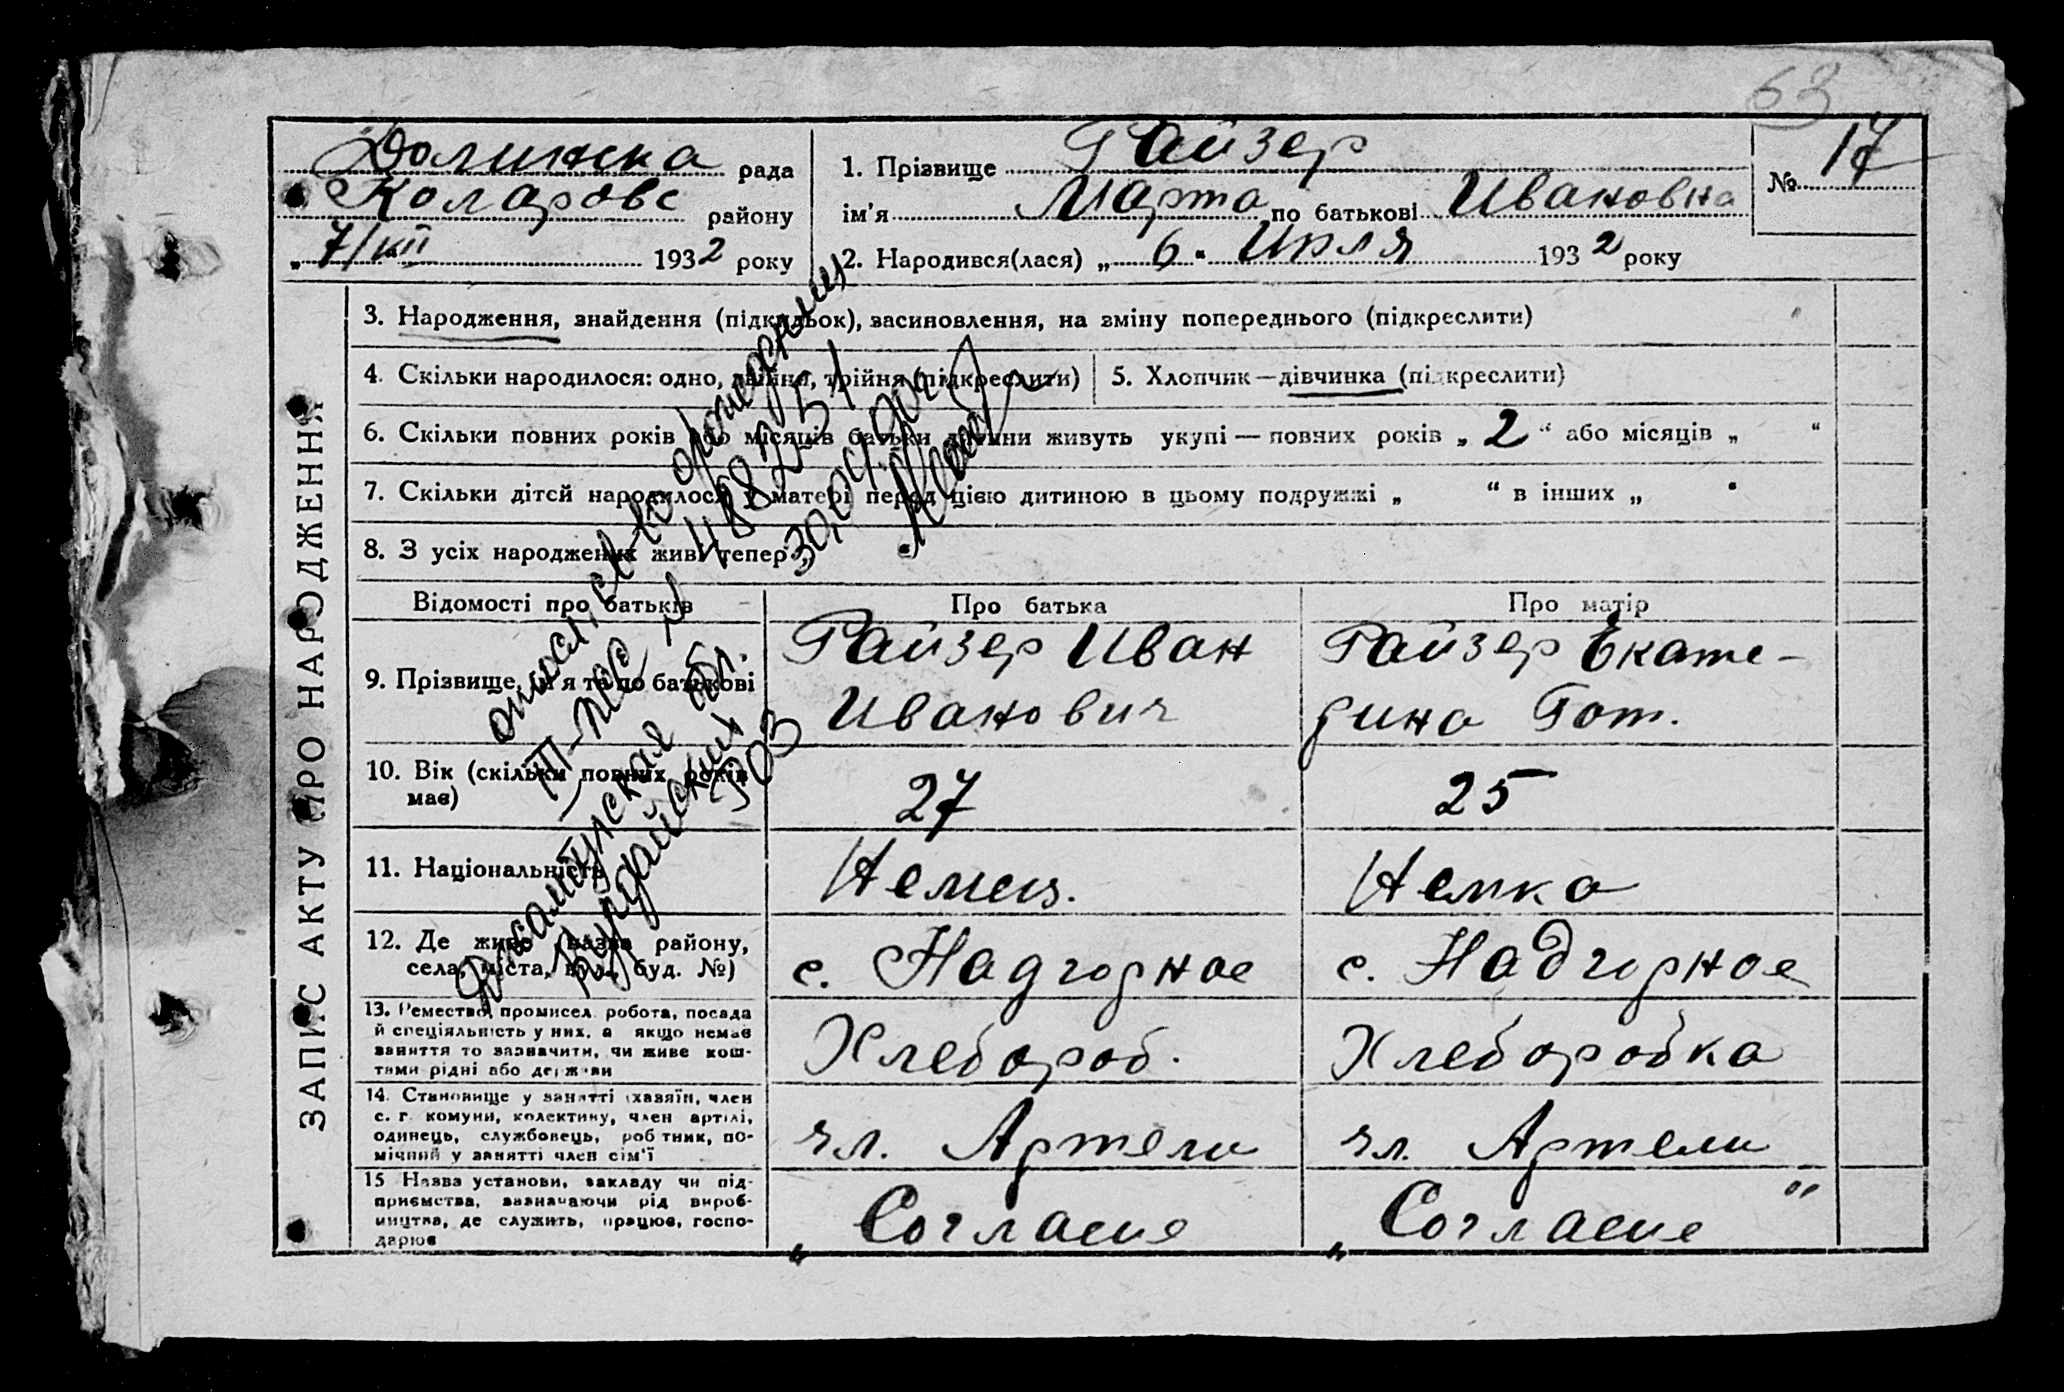 63
Долинска рада
Коларовс району
„ 7/VII 1932 року
1. Прізвище Гайзер
ім'я Марта по батькові Ивановна
2. Народився(лася) „ 6 " Июля 1932 року
№ 17
ЗАПИС АКТУ ПРО НАРОДЖЕННЯ
3. Народження, знайдення (підкидьок), засиновлення, на зміну попереднього (підкреслити)
4. Скільки народилося: одно, двійня, трійня (підкреслити)
5. Хлопчик—дівчинка (підкреслити)
6. Скільки повних років або місяців батьки дитини живуть укупі — повних років „ 2 " або місяців „ "
7. Скільки дітей народилося у матері перед цією дитиною в цьому подружжі „ " в інших „ "
8. З усіх народжених живі тепер „ "
Відомості про батьків
Про батька
Про матір
9. Прізвище, ім'я та по батькові
Гайзер Иван
Иванович
Гайзер Екате-
рина Гот.
10. Вік (скільки повних років
має)
27
25
11. Національність
Немец.
Немка
12. Де живе (назва району,
села, міста, вул., буд. №)
с. Надгорное
с. Надгорное
13. Ремество, промисел, робота, посада
й спеціяльність у них, а якщо немає
заняття то зазначити, чи живе кош-
тами рідні або держави
Хлебороб.
Хлеборобка
14. Становище у занятті (хазяїн, член
с. г. комуни, колективу, член артілі,
одинець, службовець, робітник, по-
мічний у занятті член сім'ї
чл. Артели
чл. Артели
15 Назва установи, закладу чи під-
приємства, зазначаючи рід вироб-
ництва, де служить, працює, госпо-
дарює
„ Согласие
„ Согласие "
св-во о рождении
III-ПЮ № 488275
30,
Джамбулская обл.
Курдайский